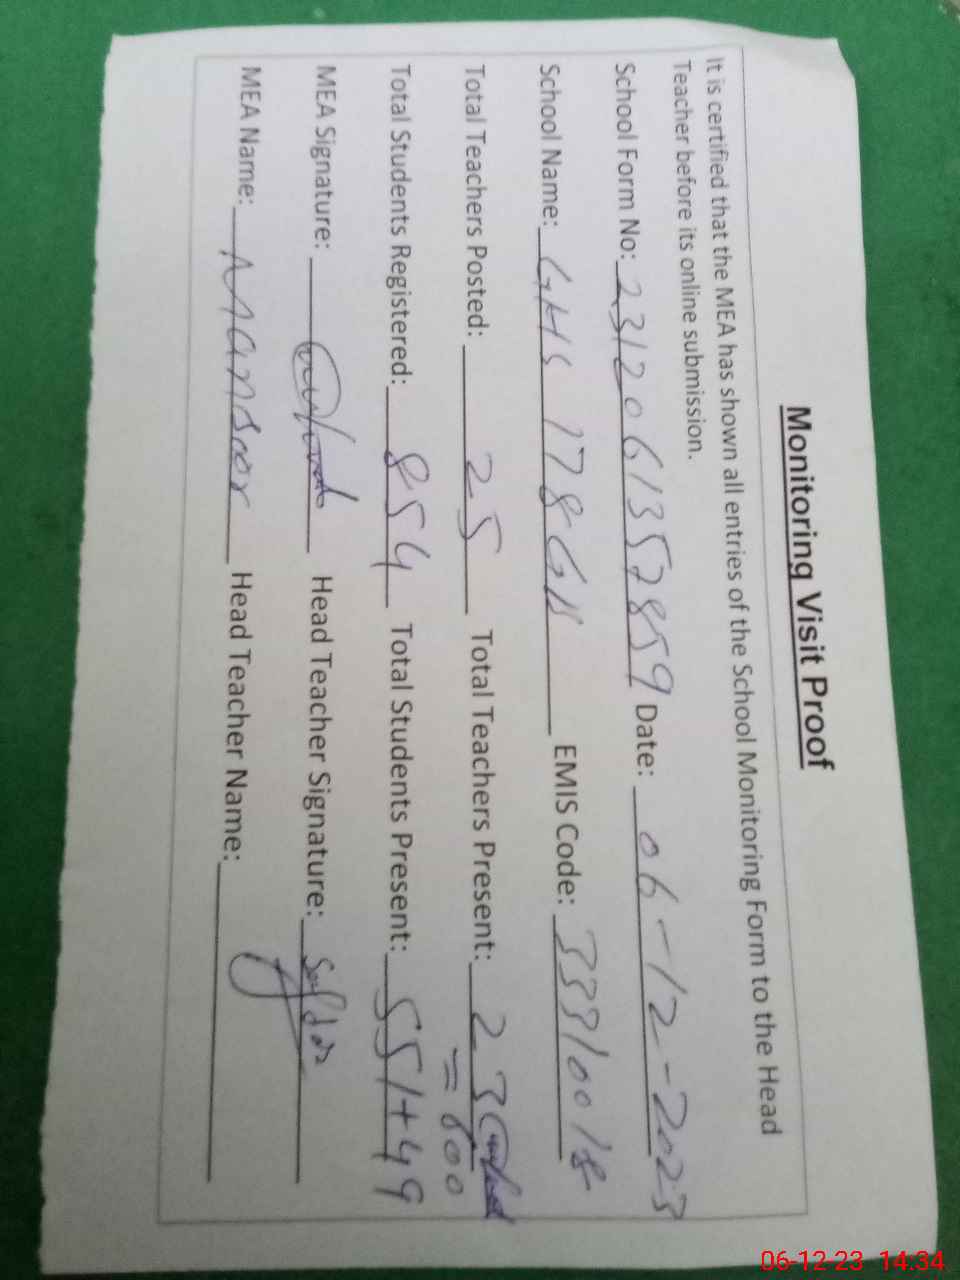 Monitoring Visit Proof
It is certified that the MEA has shown all entries of the School Monitoring Form to the Head
Teacher before its online submission.
School Form No: 2312061357859 Date: 06-12-2023
School Name: GHS 178GB EMIS Code: 33310018
Total Teachers Posted: 25 Total Teachers Present: 23
= 600
Total Students Registered: 854 Total Students Present: 551+49
MEA Signature: Head Teacher Signature: Safdar
MEA Name: Mansoor Head Teacher Name:
06-12-23 14:34